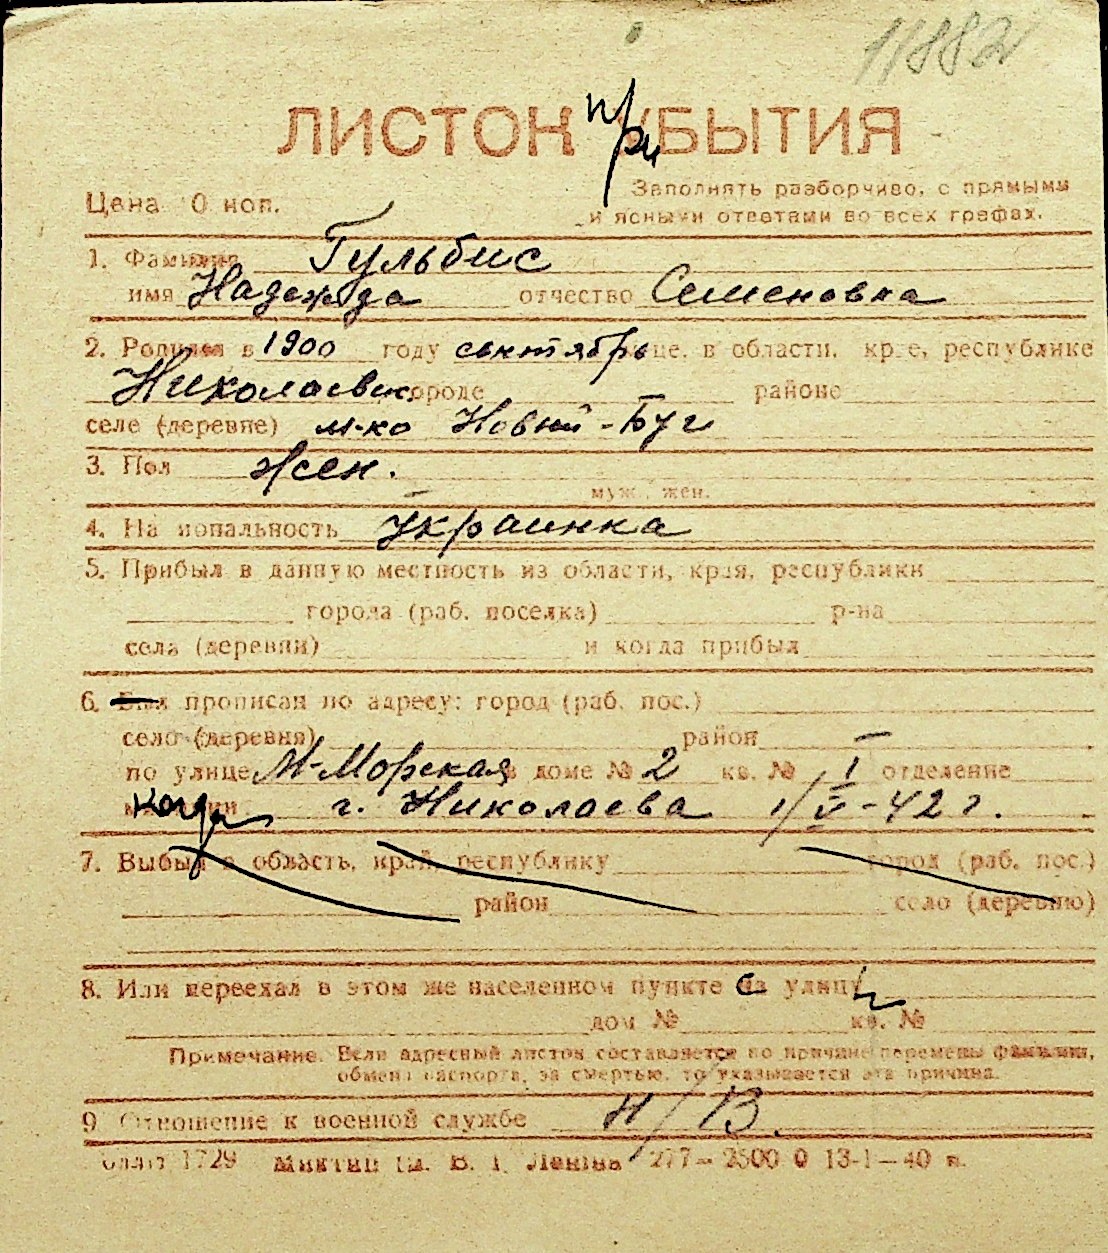 11882
ЛИСТОК при УБЫТИЯ
Цена 10 коп.
Заполнять разборчиво, с прямыми
и ясными ответами во всех графах.
1. Фамилия Гульбис
имя Надежда отчество Семеновна
2. Родился в 1900 году сентябрь це. в области, крае, республике
Николаевск. городе районе
селе (деревне) м-ко Новый-Буг
3. Пол жен.
муж., жен.
4. Национальность украинка
5. Прибыл в данную местность из области, края, республики
города (раб. поселка) р-на
села (деревни) и когда прибыл
6. Был прописан по адресу: город (раб. пос.)
село (деревня) район —
по улице М-Морская в доме № 2 кв. № I отделение
когда г. Николаева 1/V-42 г.
7. Выбыл в область, край, республику город (раб. пос.)
район село (деревню)
8. Или переехал в этом же населенном пункте с улицы
дом № кв. №
Примечание. Если адресный листок составляется по причине перемены фамилии,
обмена паспорта, за смертью, то указывается эта причина.
9. Отношение к военной службе н/в.
1729 В. І. Леніна 277— 2500 0 13-1—40 п.